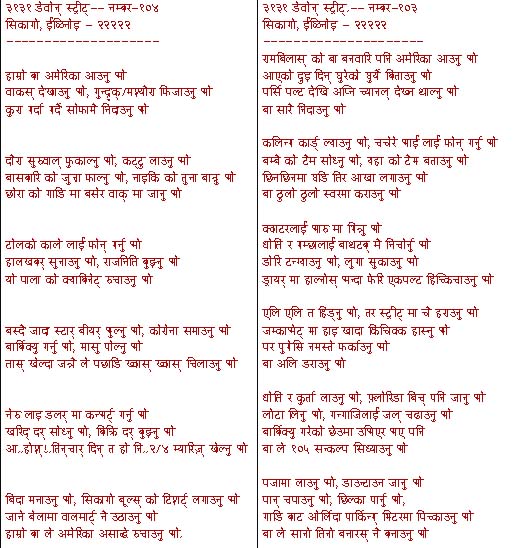 ३१३१ डेवोन् स्ट्रीट्-- नम्बर-१०४
सिकागो, ईलिनोइ - २२२२२
--------------------
हाम्रो बा अमेरिका आउनु भो
वाकस् देखाउनु भो, गुन्द्रुक्/मस्यौरा फिजाउनु भो
कुरा गर्दा गर्दै सोफामै निदाउनु भो
दौरा सुरुवाल् फुकाल्नु भो, कट्टु लाउनु भो
बासकारि को जुत्ता फाल्नु भो, नाइकि को तुना बान्नु भो
छोरा को गाडि मा बसेर वाक् मा जानु भो
टोलको काले लाई फोन् गर्नु भो
हालखबर् सुनाउनु भो, राजनिति बुझ्नु भो
यो पाला को क्याबिनेट् रुचाउनु भो
बस्दै जादा स्टार् बीयर् भुल्नु भो, कोरोना समाउनु भो
बार्बिक्यु गर्नु भो, मासु पोल्नु भो
तास् खेल्दा जन्नै ले पछाडि ख्वास् ख्वास् चिलाउनु भो
नेरु लाइ डलर् मा कन्भर्ट् गर्नु भो
खरिद् दर् सोध्नु भो, बिक्रि दर् बुझ्नु भो
बिदा मनाउनु भो, सिकागो बूल्स् को टिशर्ट् लगाउनु भो
जाने बेलामा वालमार्ट् नै उठाउनु भो
हाम्रो बा ले अमेरिका असाध्धै रुचाउनु भो.
३१३१ डेवोन् स्ट्रीट्-- नम्बर-१०३
सिकागो, ईलिनोइ - २२२२२
--------------------
रामबिलास् को बा बनवारि पनि अमेरिका आउनु भो
आएको दुइ दिन् घुरेको घुर्यै बिताउनु भो
पर्सि पल्ट देखि अप्नि च्यानल् देख्न थाल्नु भो
बा सारै निदाउनु भो
कलिन्ग कार्ड् ल्याउनु भो, चचेरे भाई लाई फोन् गर्नु भो
बम्बै को टैम सोध्नु भो, यहा को टैम बताउनु भो
छिनछिनमा घडि तिर आखा लगाउनु भो
बा ठुलो ठुलो स्वरमा कराउनु भो
क्वाटरलाई भारु मा गिन्नु भो
धोति र गम्छालाई बाथटब् मै निचोर्नु भो
डोरि टन्गाउनु भो, लुगा सुकाउनु भो
ड्रायर् मा हाल्नोस् भन्दा फेरि एकपल्ट हिच्किचाउनु भो
एलि एलि त हिंड्नु भो, तर स्ट्रीट् मा चै हराउनु भो
जम्काभेट् मा हाइ खादा किचिक्क हास्नु भो
पर पुगेसि नमस्ते फर्काउनु भो
बा अलि डराउनु भो
धोति र कुर्ता लाउनु भो, फ़्लोरिडा बिच् पनि जानु भो
लोटा लिनु भो, गन्गाजिलाई जल् चढाउनु भो
बार्बिक्यु गरेको छेउमा उभिएर भए पनि
बा ले १०५ सन्कल्प सिध्याउनु भो
पजामा लाउनु भो, डाउन्टाउन जानु भो
पान् चपाउनु भो, छिल्का पार्नु भो,
गाडि बाट ओर्लिदा पार्किन्ग् मिटरमा पिच्काउनु भो
बा ले सानो तिनो बनारस् नै बनाउनु भो